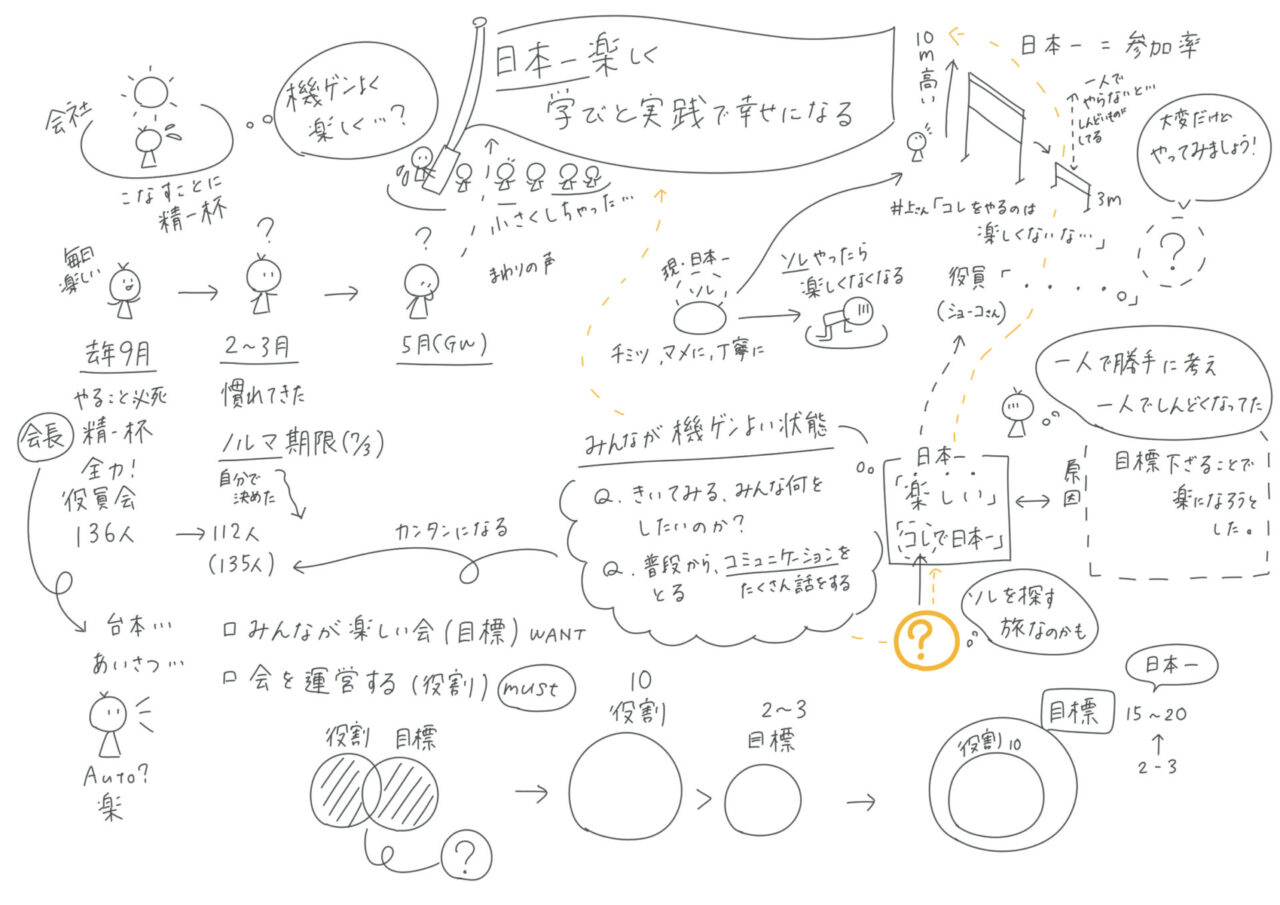 会社
こなすことに
精一杯
機ゲンよく
楽しく…?
日本一楽しく
学びと実践で幸せになる
小さくしちゃった…
まわりの声
10m高い
日本一=参加率
一人で
やらないと…
しんどいものが
してる
3m
大変だけど
やってみましょう!
?
井上さん「コレをやるのは
楽しくないな…」
役員「・・・・。」
(ショーコさん)
現・日本一
ソレ
チミツ,マメに,丁寧に
ソレやったら
楽しくなくなる
毎日
楽しい
去年9月
やること必死
精一杯
全力!
役員会
136人
?
2〜3月
慣れてきた
ノルマ期限(7/3)
自分で
決めた
112人
(135人)
?
5月(GW)
カンタンになる
会長
台本…
あいさつ…
Auto?
楽
みんなが機ゲンよい状態
Q.きいてみる、みんな何を
したいのか?
Q.普段から、コミュニケーションを
とる
たくさん話をする
日本一
「楽しい」
「コレで日本一」
原因
一人で勝手に考え
一人でしんどくなってた
目標下ざることで
楽になろうと
した。
?
ソレを探す
旅なのかも
□みんなが楽しい会(目標)WANT
□会を運営する(役割)must
役割
目標
?
10
役割
>
2〜3
目標
役割10
目標
日本一
15〜20
2-3